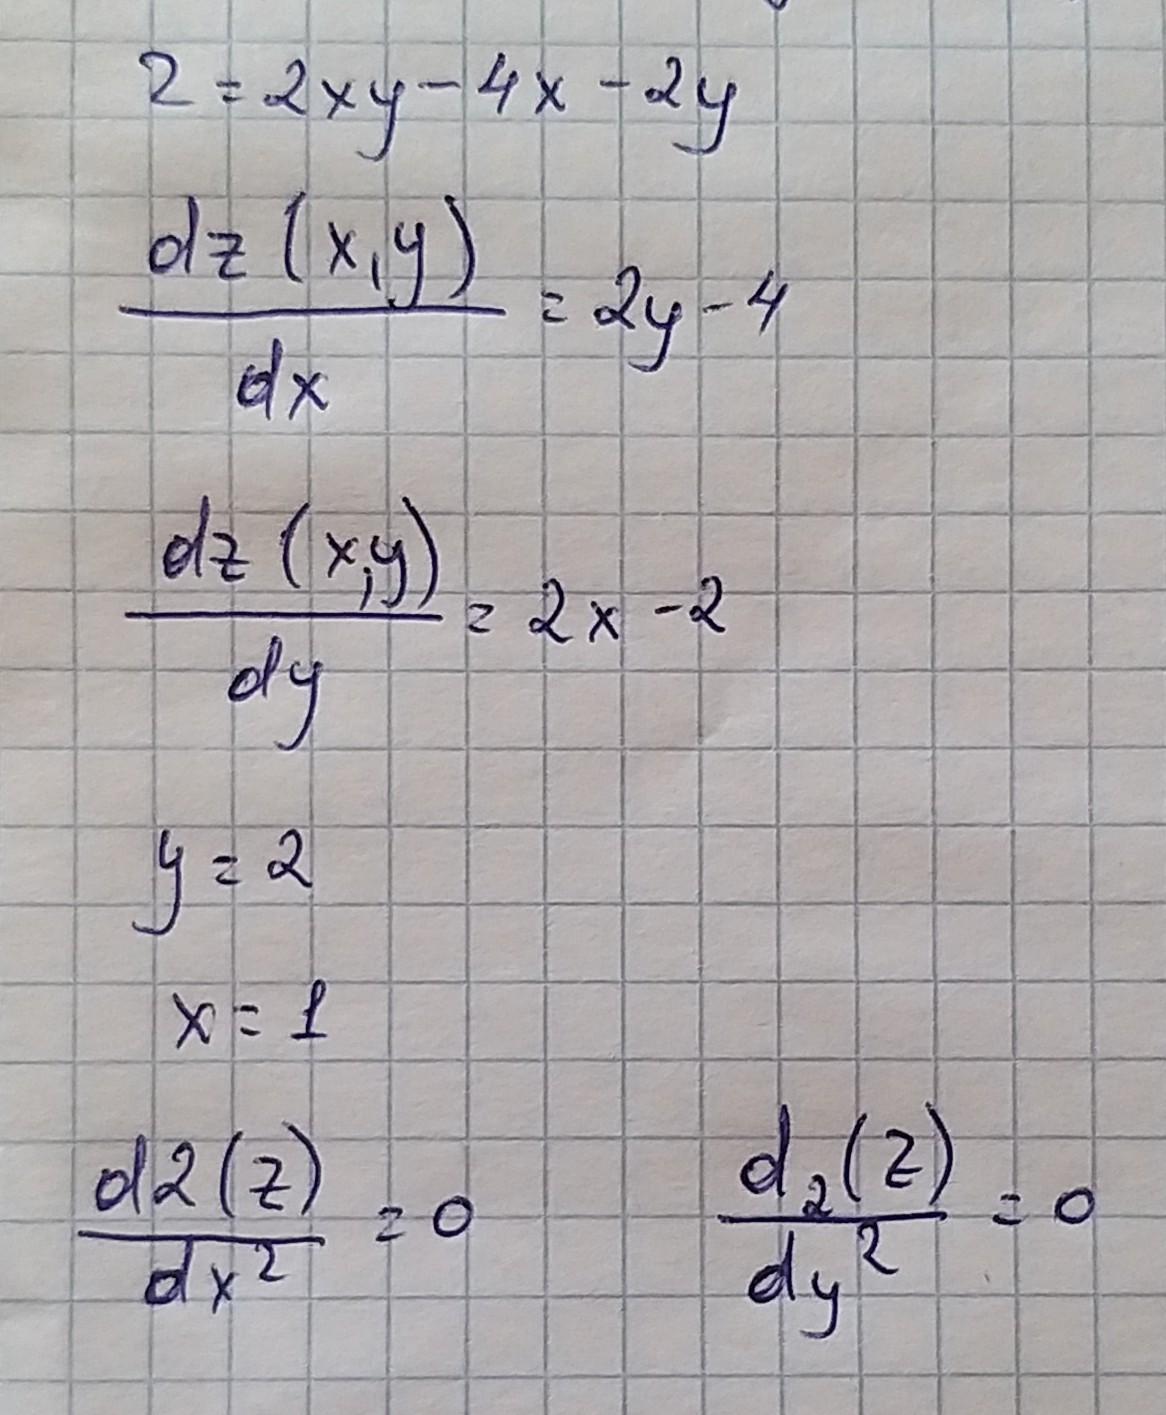 z = 2xy - 4x - 2y
dz (x,y)
dx
= 2y - 4
dz (x,y)
dy
= 2x - 2
y = 2
x = 1
d2(z)
dx²
= 0
d₂(z)
dy²
= 0